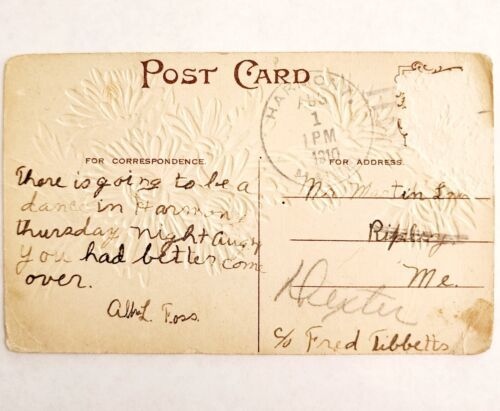 POST CARD
HARMONY
AUG
1
1 PM
1910
FOR CORRESPONDENCE.
FOR ADDRESS.
There is going to be a
dance in Harmony
thursday night Aug 4
you had better come
over.
Foss.
Mr Martin
Ripley
Me.
Dexter
c/o Fred Tibbetts